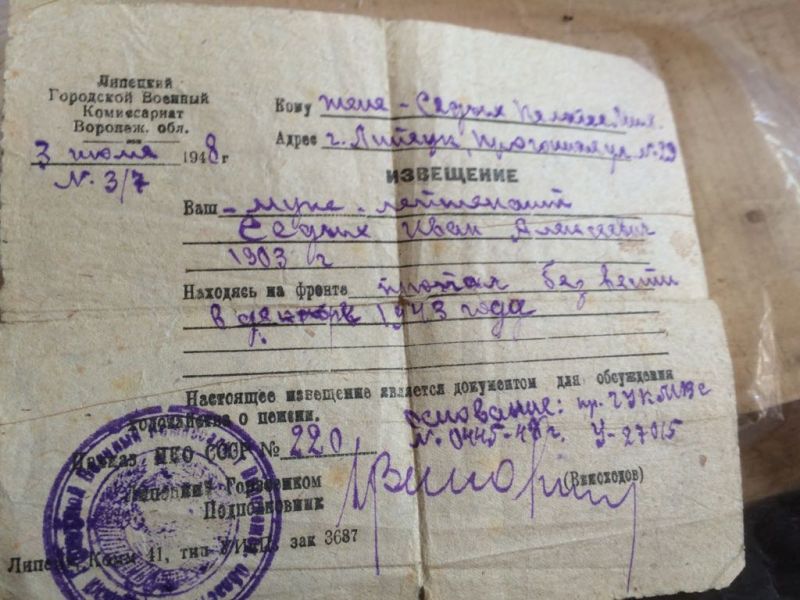 Липецкий
Городской Военный
Комиссариат
Воронеж. обл.
3 июля 1948 г
N. 3/7
Кому жене - Седых
Адрес г. Липецк, N. 29
ИЗВЕЩЕНИЕ
Ваш - муж - лейтенант
Седых Иван Алексеевич
1903 г
Находясь на фронте пропал без вести
в декабре 1943 года
Настоящее извещение является документом для обсуждения
ходатайства о пенсии.
основание: пр. ГУК МВС
N. 0445-48 г. У-27015
Приказ НКО СССР № 220
Липецкий Горвоенком
Подполковник
(Виноходов)
Липецк, Комм 41, тип УИТЛ, зак 3687